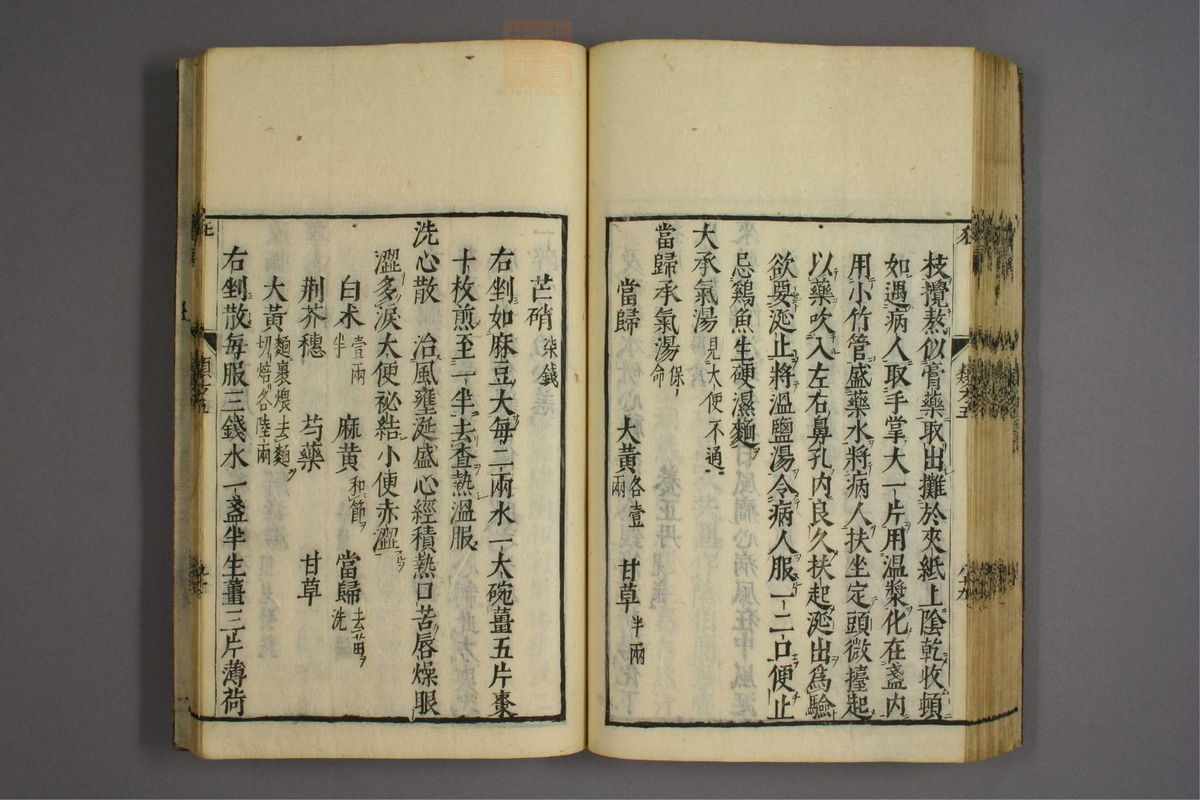 枝攪熬似膏藥取出攤於夾紙上陰乾收頓
如遇病人取手掌大一片用温漿化在盞内
用小竹管盛藥水將病人扶坐定頭微擡起
以藥吹入左右鼻孔内良久扶起涎出爲驗
欲要涎止將溫鹽湯令病人服一二口便止
忌鷄魚生硬濕麵
大承氣湯 見大便不通
當歸承氣湯 保命
當歸 大黃 各壹兩 甘草 半兩
芒硝 柒錢
右剉如麻豆大每二兩水一大碗薑五片棗
十枚煎至一半去查熱溫服
洗心散 治風壅涎盛心經積熱口苦唇燥眼
澀多淚大便祕結小便赤澀
白朮 壹兩半 麻黃 和節 當歸 去苗洗
荆芥穗 芍藥 甘草
大黃 麵裹煨去麵切焙各陸兩
右剉散每服三錢水一盞半生薑三片薄荷